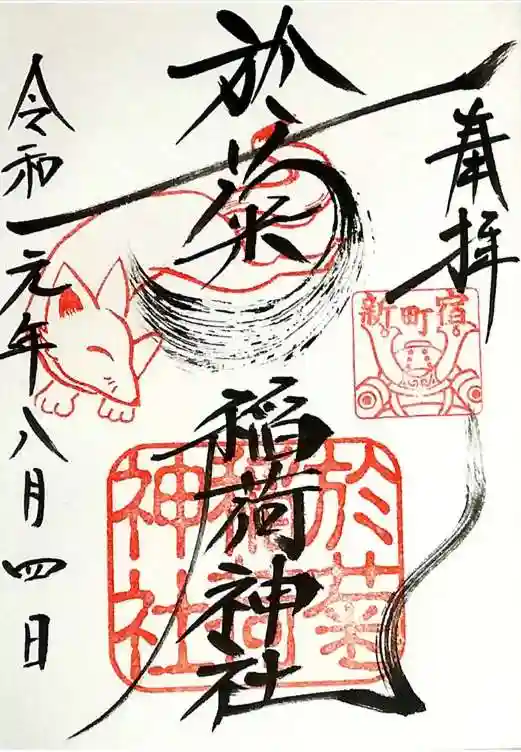 奉拝
新町宿
於菊
稲荷神社
於菊
稲荷
神社
令和元年八月四日